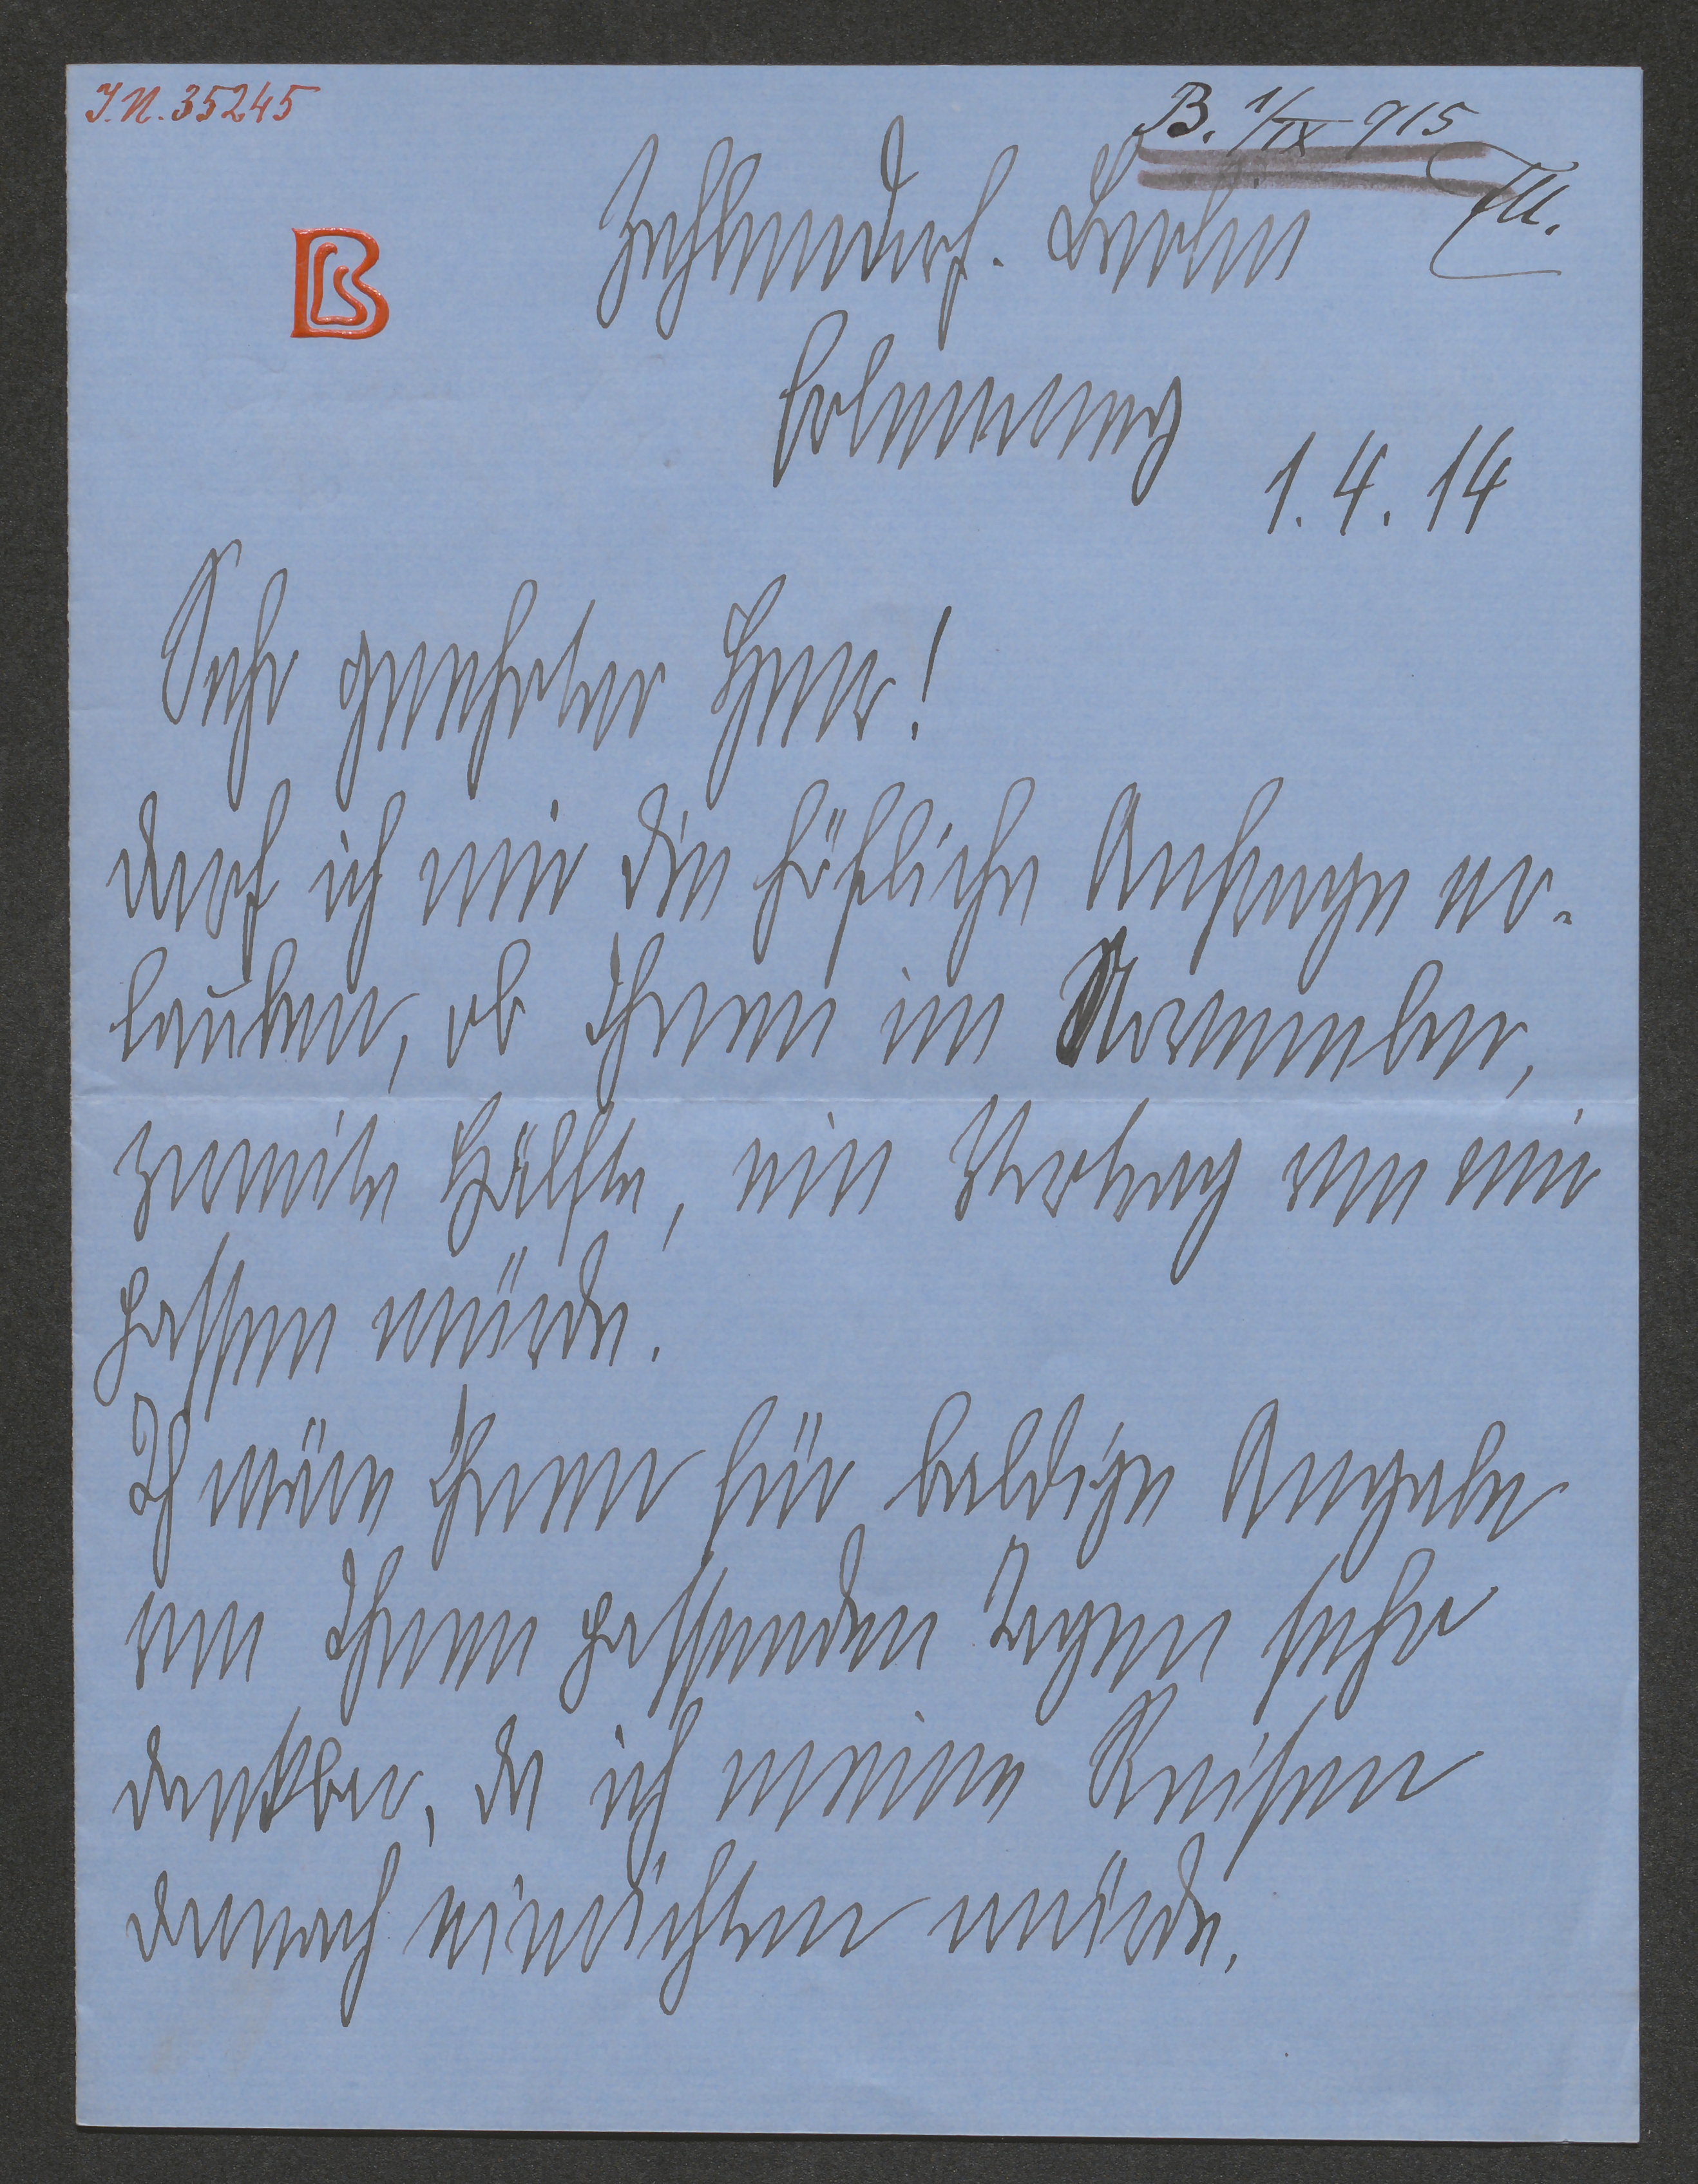 I.N. 35245
B. 1/IX 915
Zehlendorf. Berlin
1.4.14
Sehr geehrter Herr!
darf ich mir die höfliche Anfrage er-
lauben, ob Ihnen im November,
zweite Hälfte, ein Vortrag von mir
passen würde.
Ich wäre Ihnen für baldige Angabe
von Ihnen passenden Tagen sehr
dankbar, da ich meine Reisen
danach einrichten würde.